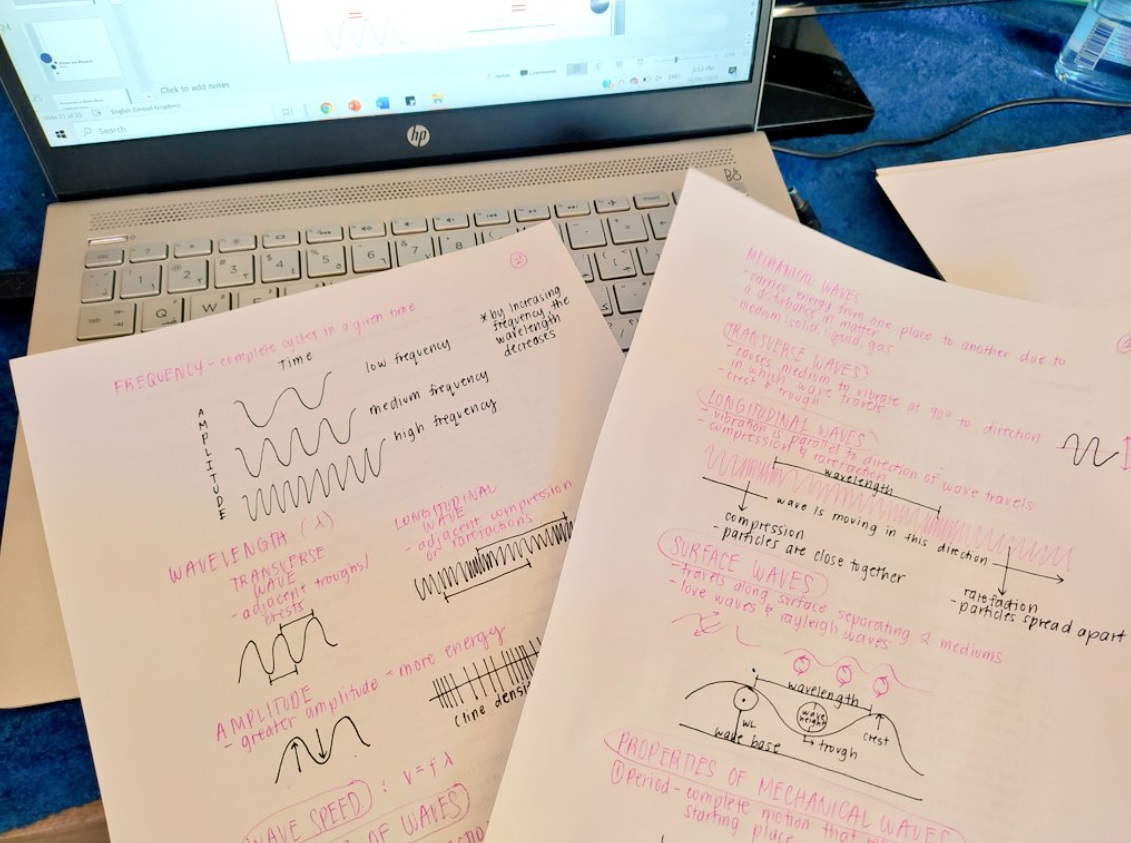 Click to add notes
English (United Kingdom)
Search
hp
②
FREQUENCY - complete cycles in a given time
Time
low frequency
medium frequency
high frequency
* by increasing
frequency the
wavelength
decreases
AMPLITUDE
WAVELENGTH (λ)
TRANSVERSE
WAVE
- adjacent troughs/
crests
LONGITUDINAL
WAVE
- adjacent compression
or rarefactions
AMPLITUDE
- greater amplitude = more energy
(line
WAVE SPEED : v=fλ
OF WAVES
MECHANICAL WAVES
- carries energy from one place to another due to
a disturbance in matter
medium: solid, liquid, gas
TRANSVERSE WAVES
- causes medium to vibrate at 90° to direction
in which wave travels
- crest & trough
LONGITUDINAL WAVES
- vibration is parallel to direction of wave travels
- compression & rarefaction
wavelength
wave is moving in this direction
compression
- particles are close together
rarefaction
- particles spread apart
SURFACE WAVES
- travels along surface separating 2 mediums
- love waves & rayleigh waves
wavelength
wave
height
WL
crest
trough
wave base
PROPERTIES OF MECHANICAL WAVES
① Period - complete motion that
starting place